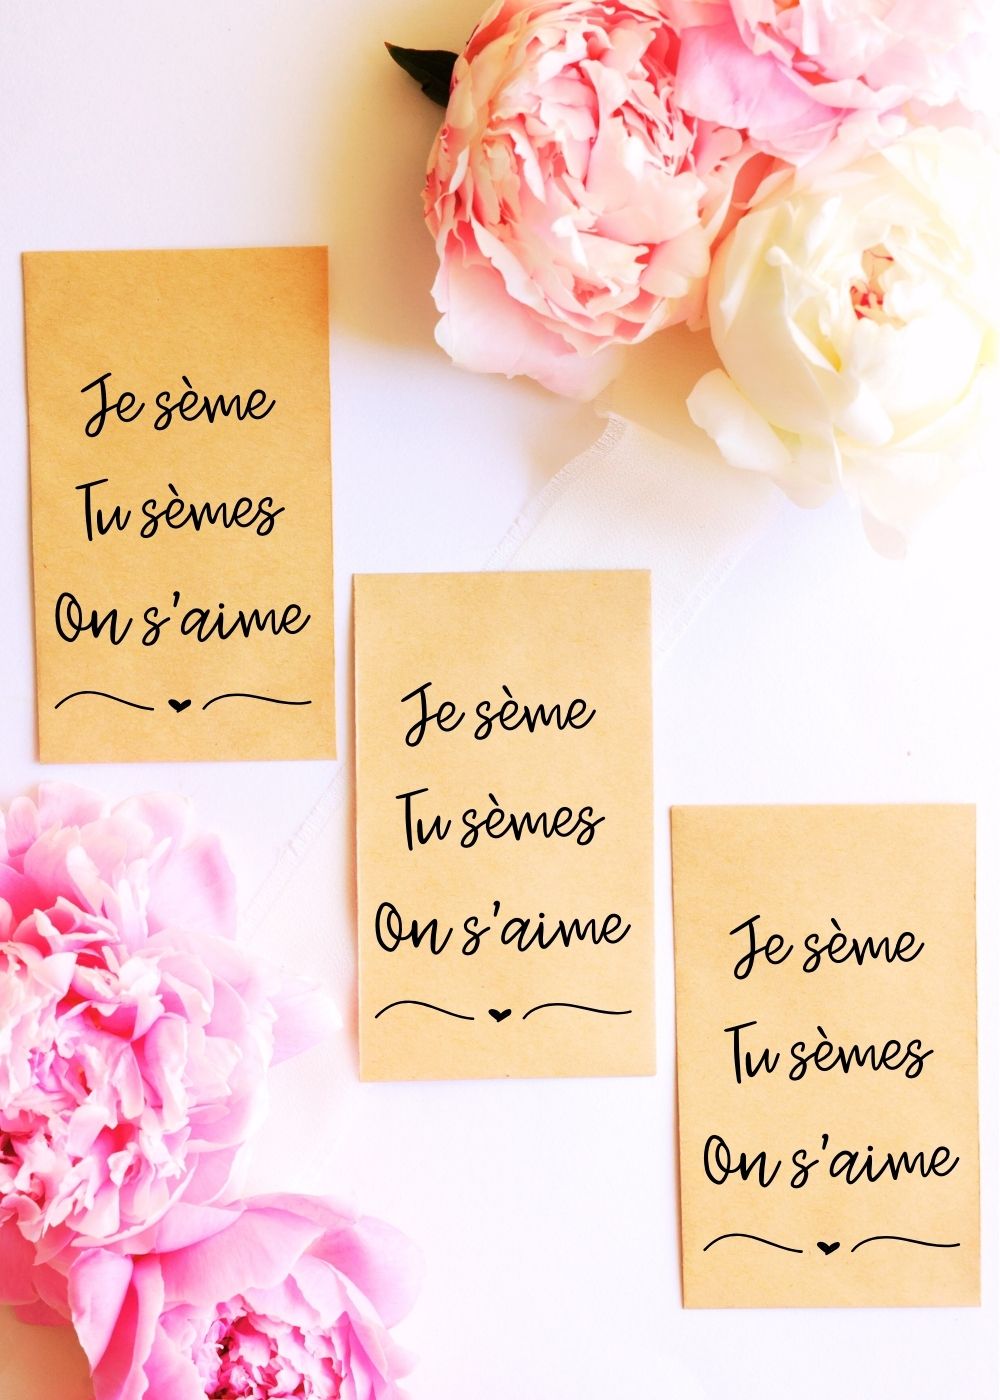 Je sème
Tu sèmes
On s'aime
Je sème
Tu sèmes
On s'aime
Je sème
Tu sèmes
On s'aime